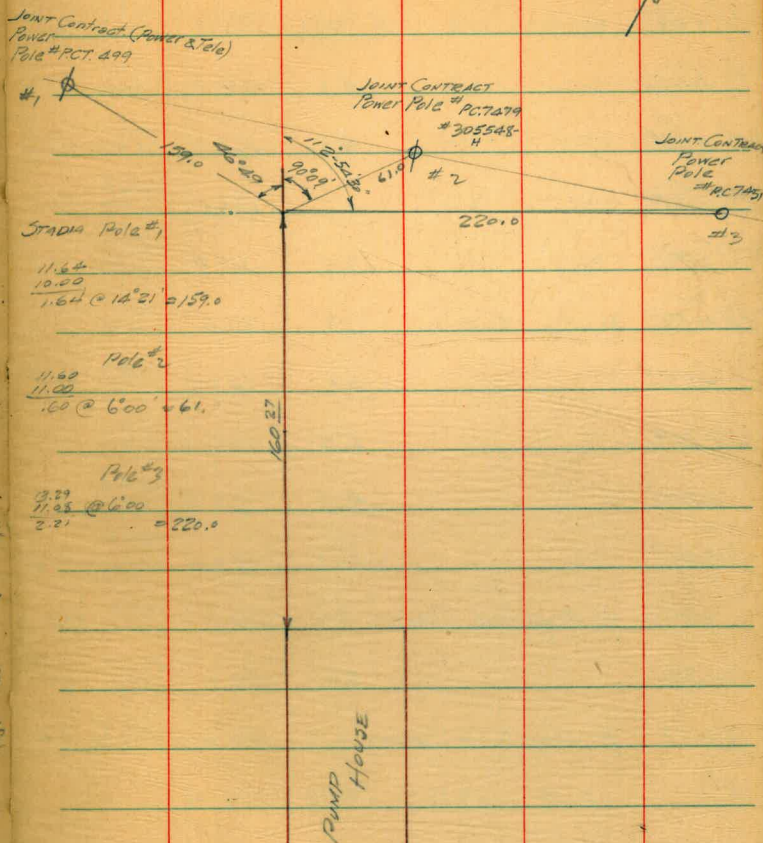 JOINT Contract (Power & Tele)
Power
Pole # P.C.T. 499
#1
JOINT CONTRACT
Power Pole # PC.7479
#305548-
H
JOINT CONTRAC
Power
Pole
# P.C 7451
#3
159.0
46°49'
90°09'
112°54'30"
61.0
#2
220.0
STADIA Pole #1
11.64
10.00
1.64 @ 14°21' = 159.0
Pole #2
11.60
11.00
.60 @ 6°00' = 61.
160.27
Pole #3
13.29
11.08 @ 6°00
2.21 = 220.0
PUMP
HOUSE